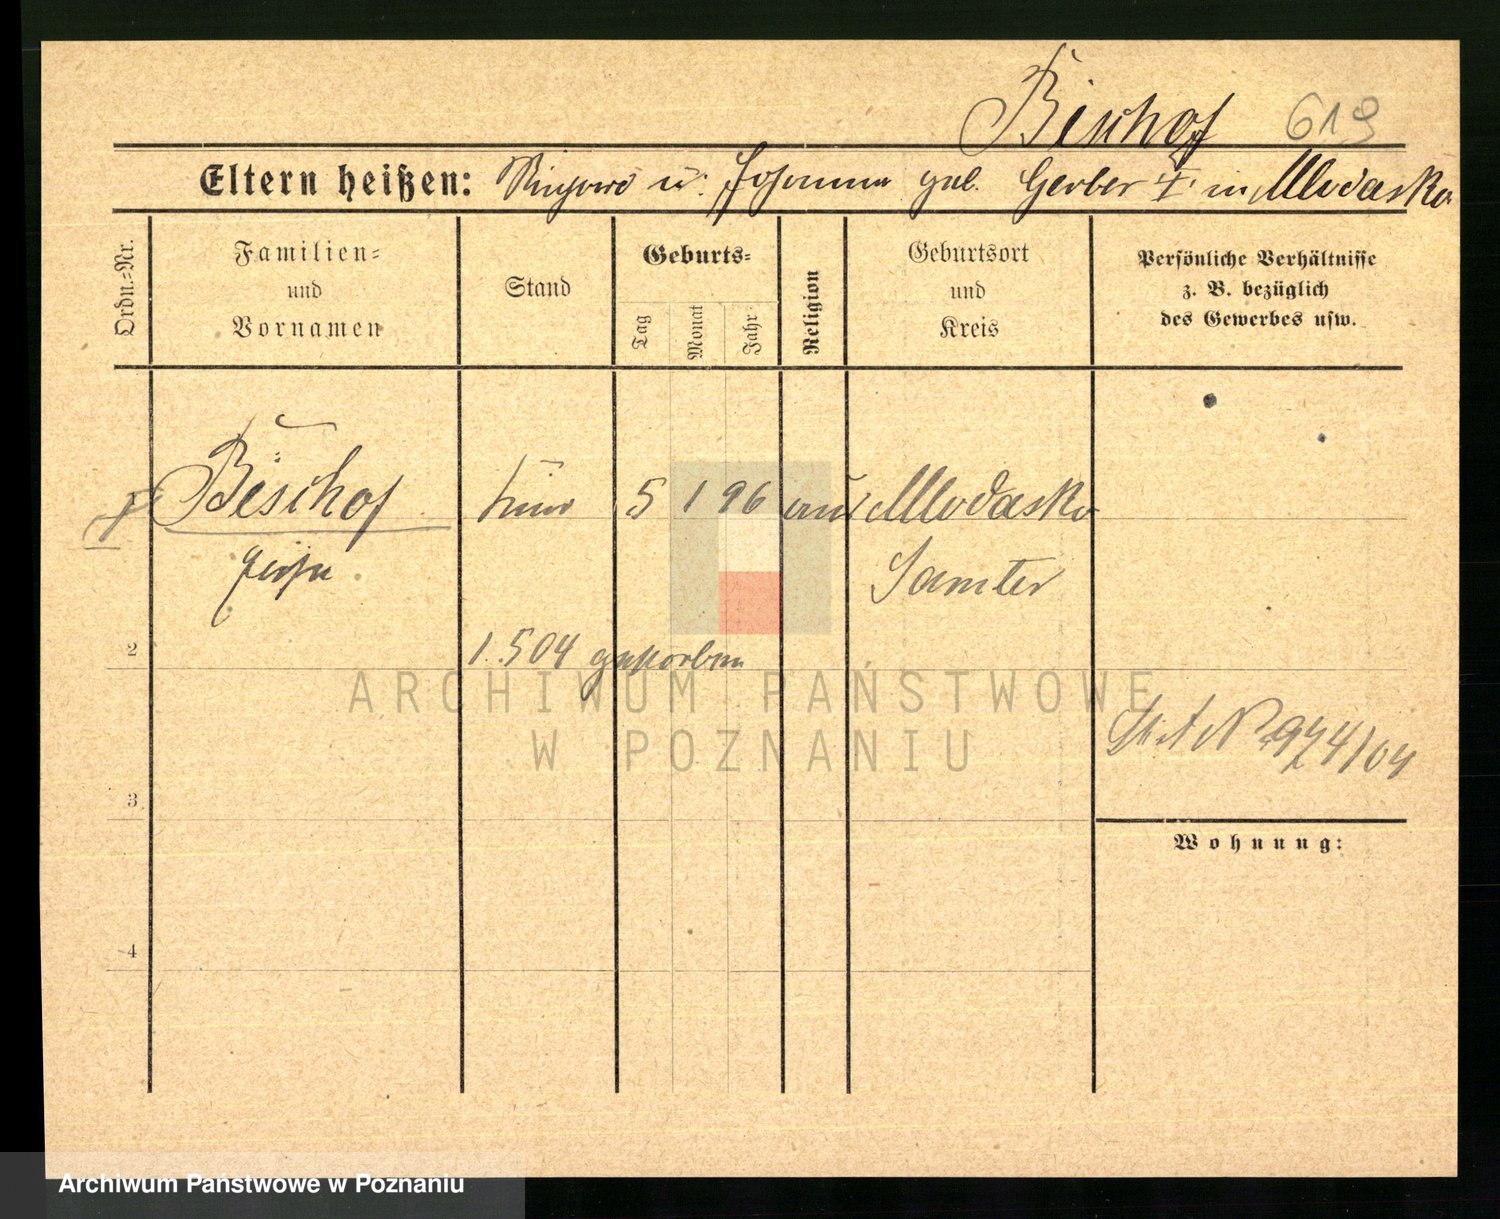 Bischof 619
Eltern heißen: Richard u. Johanna geb. Gerber in Mlodasko
Ordn.-Nr.
Familien-
und
Vornamen
Stand
Geburts-
Tag
Monat
Jahr
Religion
Geburtsort
und
Kreis
Persönliche Verhältnisse
z. B. bezüglich
des Gewerbes usw.
Bischof 5 1 96 Mlodasko
Samter
2
1.504 gestorben
ARCHIWUM PAŃSTWOWE
W POZNANIU
974/04
3
Wohnung:
4
Archiwum Państwowe w Poznaniu